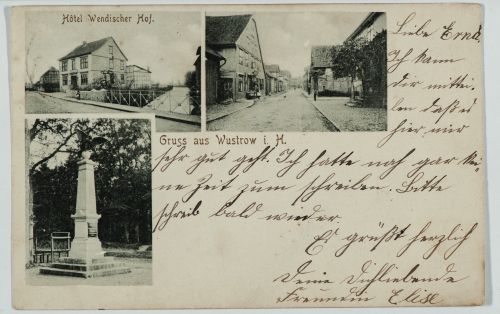 Hôtel Wendischer Hof.
Gruss aus Wustrow i. H.
Liebe Erna
Ich kann
dir mittei-
len daß es
hier mir
sehr gut geht. Ich hatte noch gar kei-
ne Zeit zum schreiben. Bitte
schreib bald wieder.
Es grüßt herzlich
Deine Dichliebende
Freundin Elise